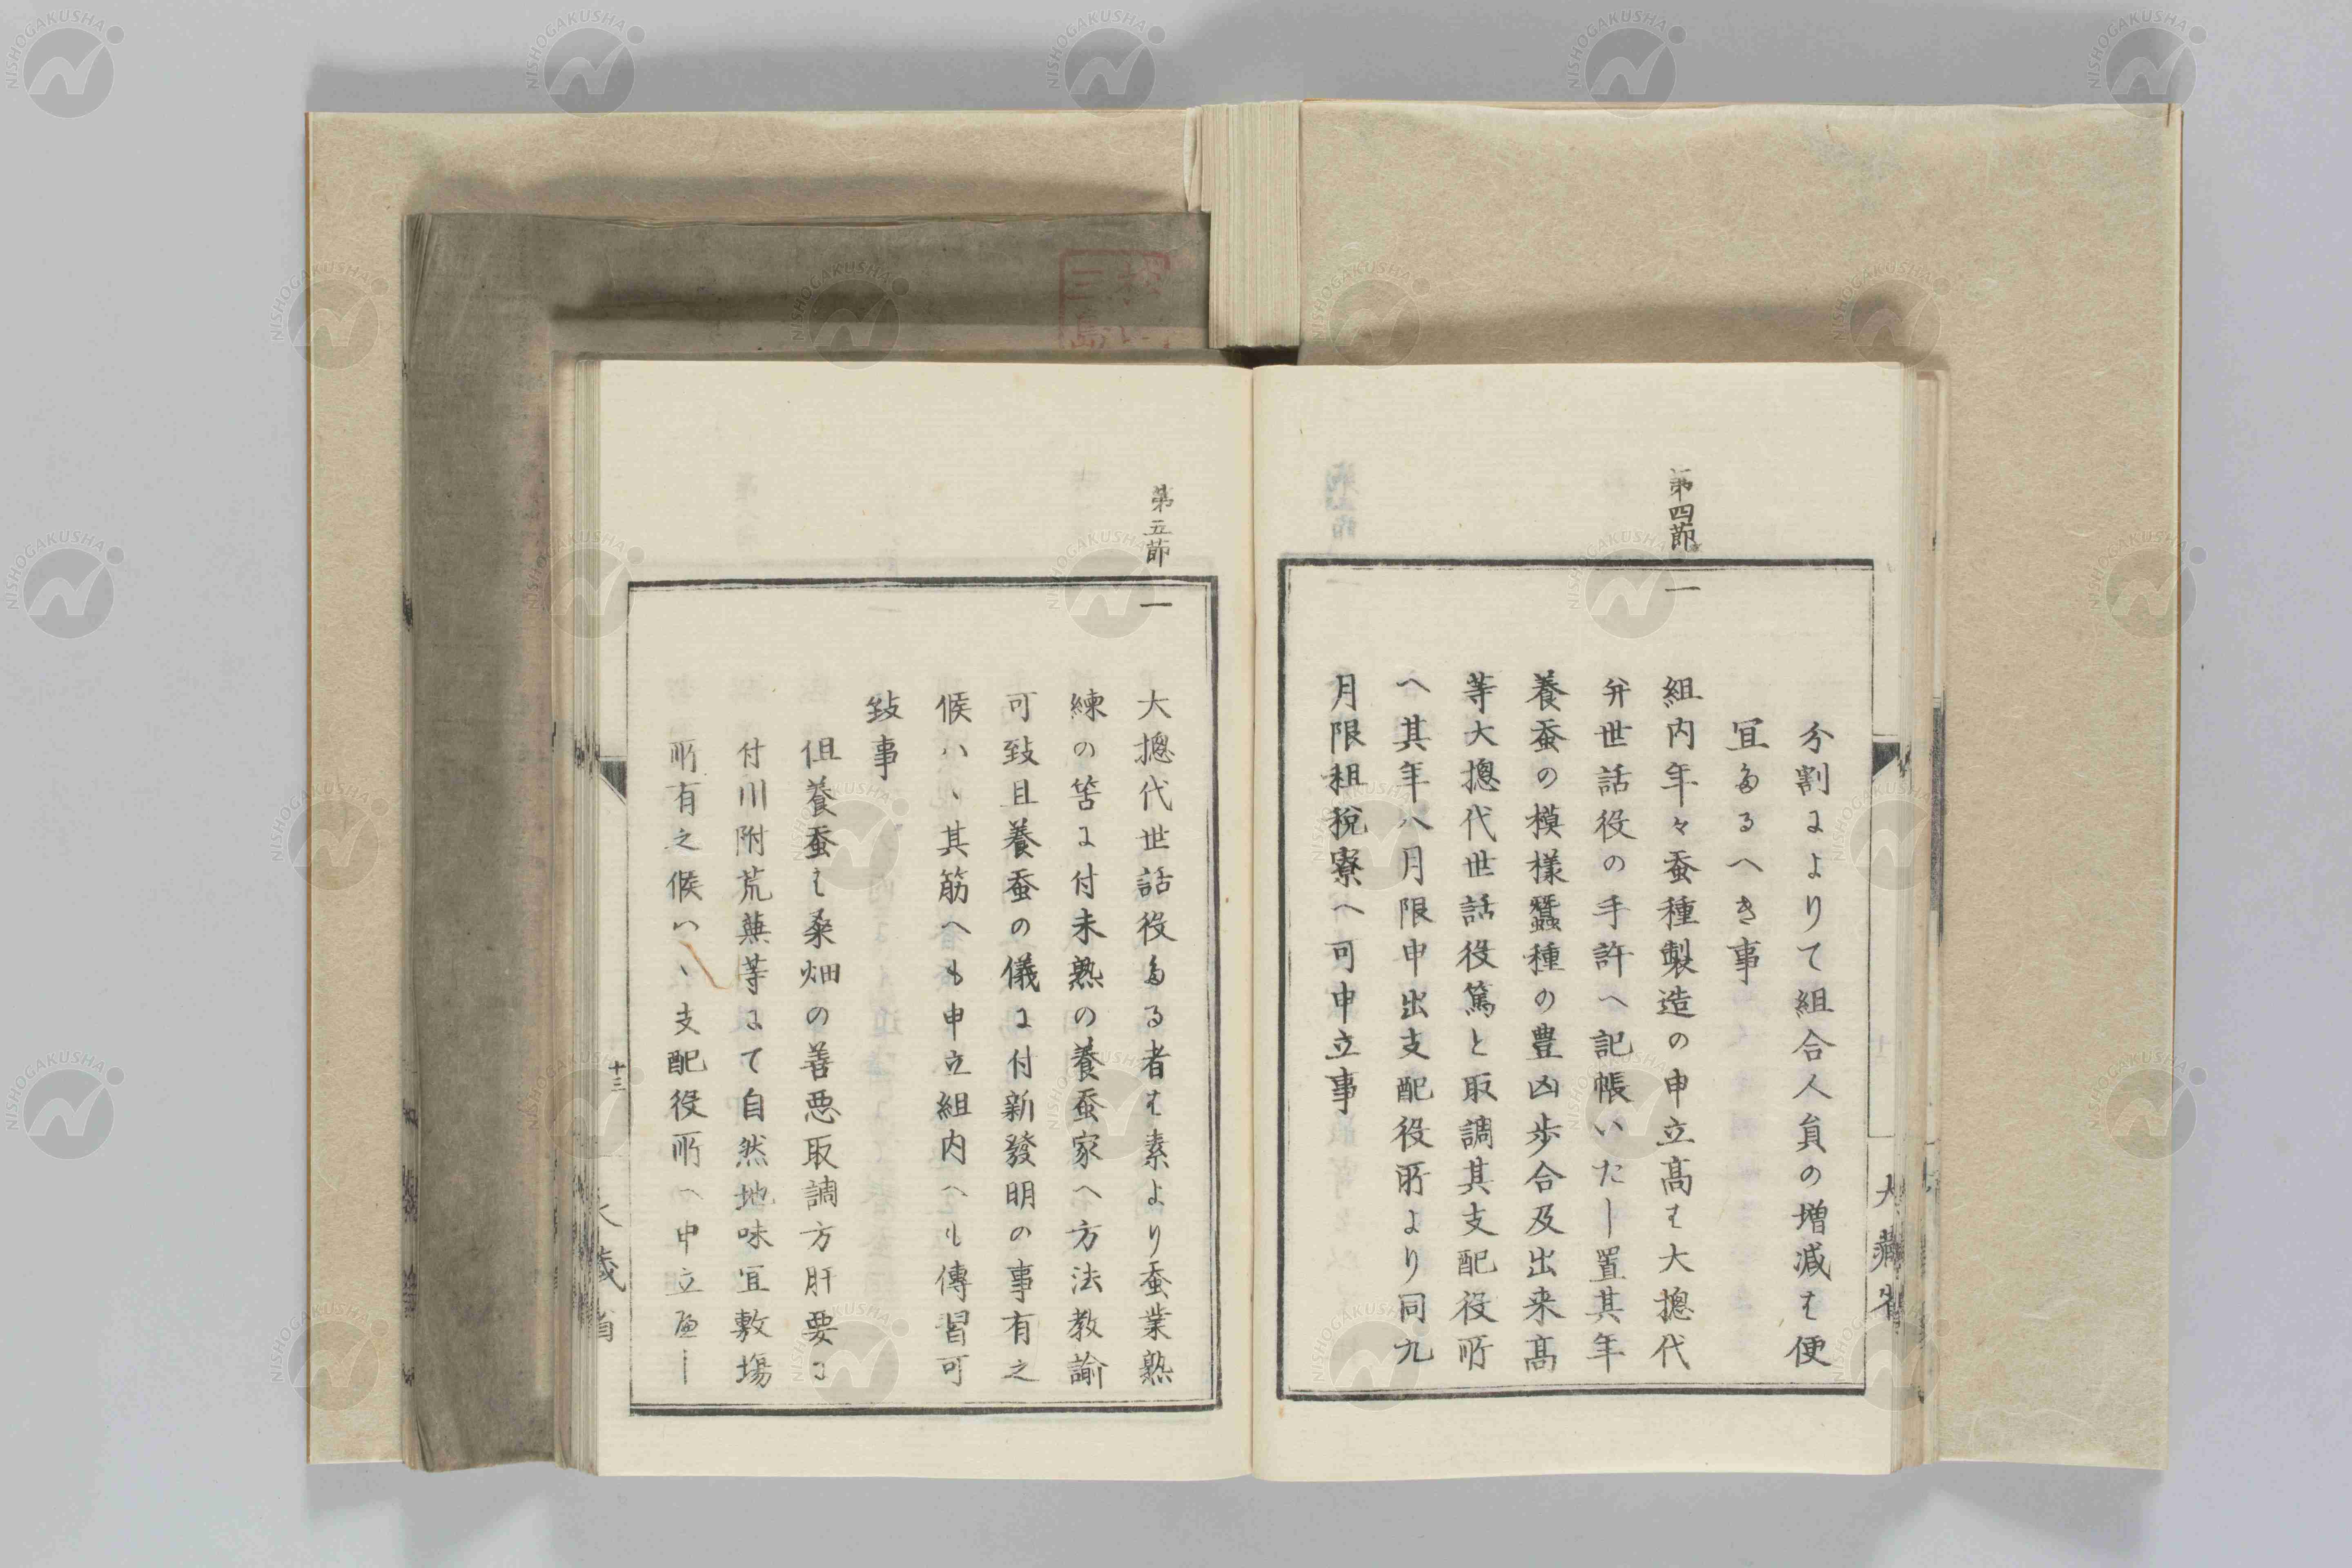 分割により て組合人員の増減は便
宜たるへき事
第四節
一
組内年々蚕種製造の申立髙は大摠代
弁世話役の手許へ記帳いたし置其年
養蚕の模樣蠶種の豊凶歩合及出来髙
等大摠代世話役篤と取調其支配役所
へ其年八月限申出支配役所より同九
月限租税寮へ可申立事
大藏省
第五節
一
大摠代世話役たる者は素より蚕業熟
練の筈に付未熟の養蚕家へ方法教諭
可致且養蚕の儀に付新發明の事有之
候ハヽ其筋へも申立組内へも傳習可
致事
但養蚕は桑畑の善悪取調方肝要に
付川附荒蕪等にて自然地味宜敷塲
所有之候ハヽ支配役所へ申立へし
十三
大藏省
三島
NISHOGAKUSHA